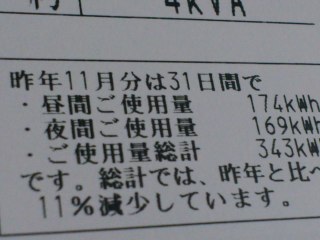 4kVA
昨年11月分は31日間で
・昼間ご使用量 174kWh
・夜間ご使用量 169kWh
・ご使用量総計 343kW
です。総計では、昨年と比べ
11%減少しています。